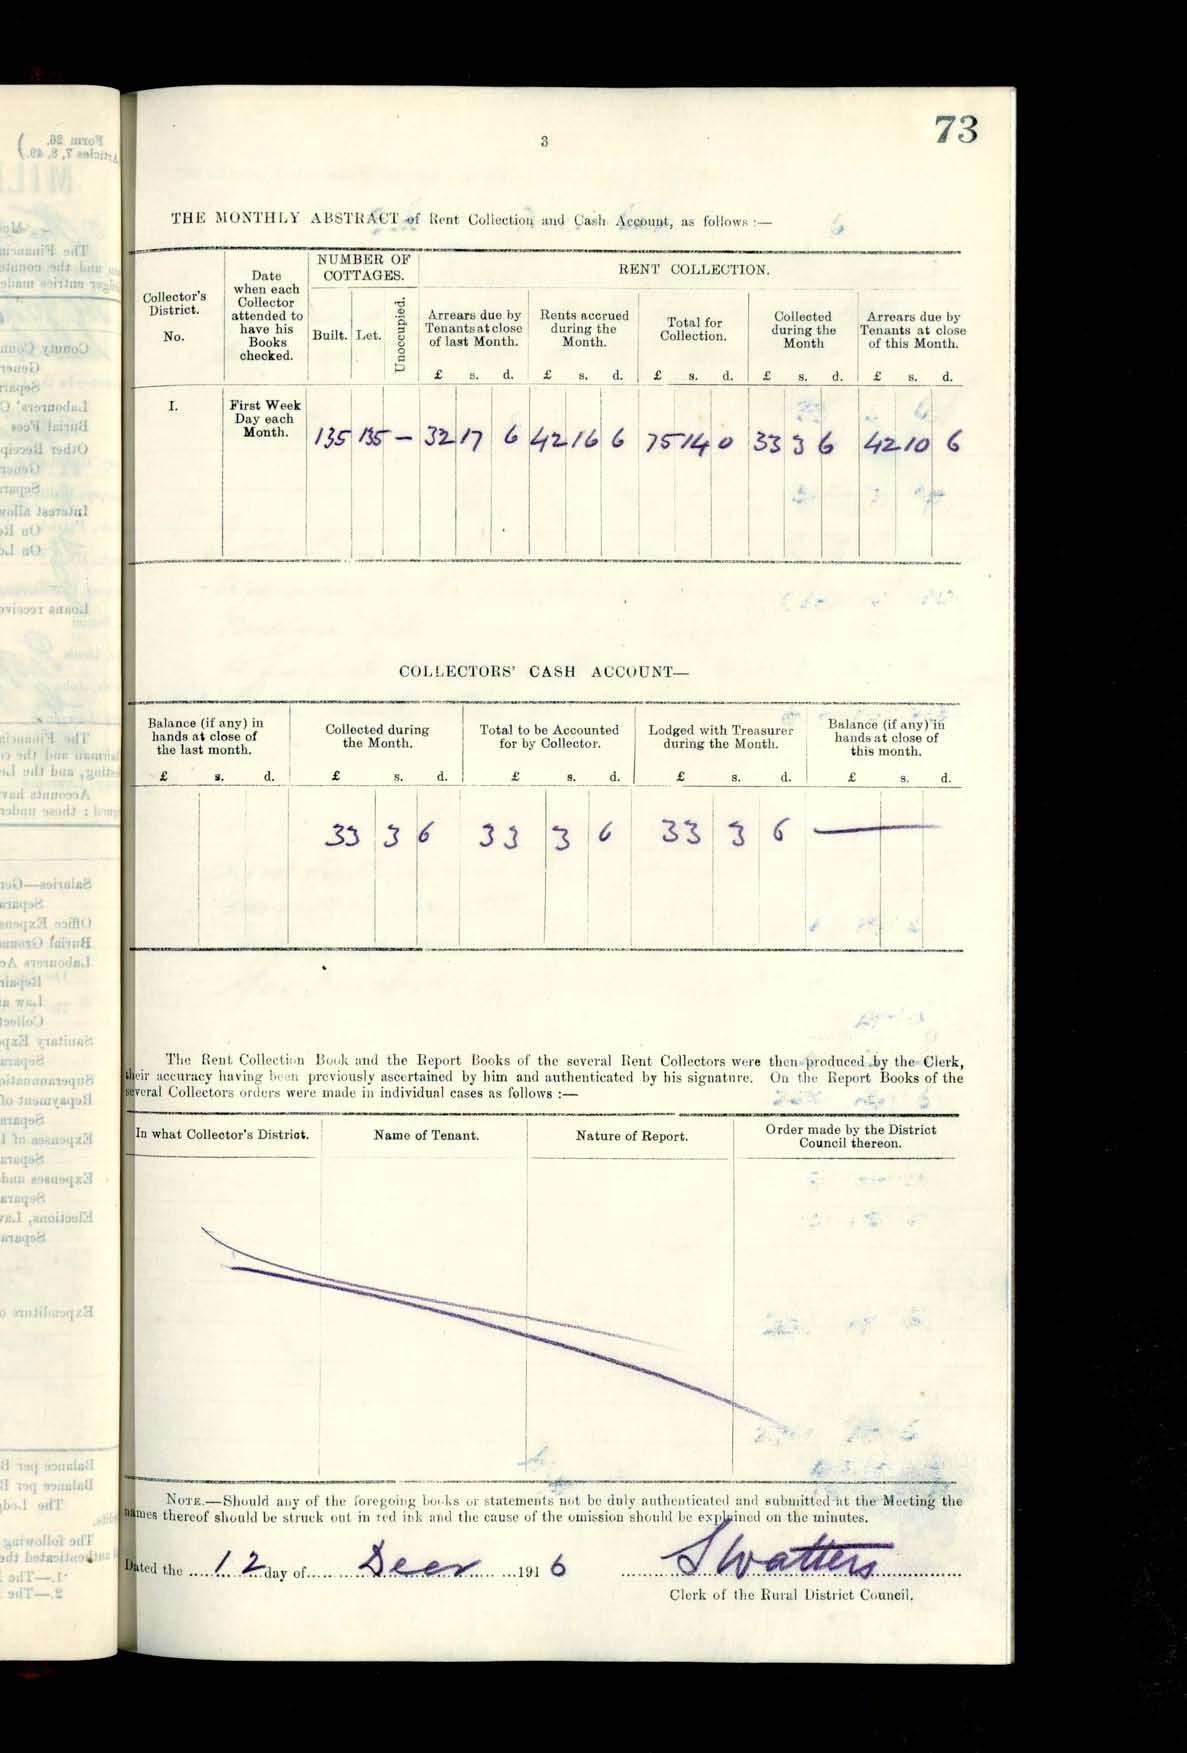 73
3
THE MONTHLY ABSTRACT of Rent Collection and Cash Account, as follows :—
Collector's District. No.
Date when each Collector attended to have his Books checked.
NUMBER OF COTTAGES.
Built. Let. Unoccupied.
RENT COLLECTION.
Arrears due by Tenants at close of last Month.
Rents accrued during the Month.
Total for Collection.
Collected during the Month
Arrears due by Tenants at close of this Month.
£ s. d. £ s. d. £ s. d. £ s. d. £ s. d.
I. First Week Day each Month. 135 135 — 32 17 6 42 16 6 75 14 0 33 3 6 42 10 6
COLLECTORS' CASH ACCOUNT—
Balance (if any) in hands at close of the last month.
Collected during the Month.
Total to be Accounted for by Collector.
Lodged with Treasurer during the Month.
Balance (if any) in hands at close of this month.
£ s. d. £ s. d. £ s. d. £ s. d. £ s. d.
33 3 6 33 3 6 33 3 6 —
The Rent Collection Book and the Report Books of the several Rent Collectors were then produced by the Clerk,
their accuracy having been previously ascertained by him and authenticated by his signature. On the Report Books of the
several Collectors orders were made in individual cases as follows :—
In what Collector's District. Name of Tenant. Nature of Report. Order made by the District Council thereon.
NOTE.—Should any of the foregoing books or statements not be duly authenticated and submitted at the Meeting the
names thereof should be struck out in red ink and the cause of the omission should be explained on the minutes.
Dated the 12 day of Decr 1916 S Watters
Clerk of the Rural District Council.